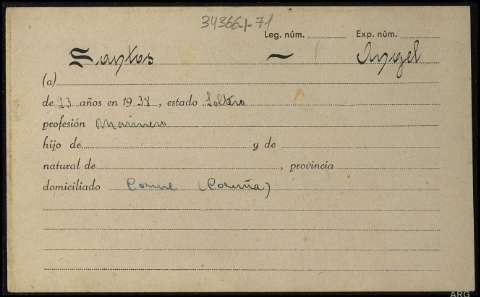 34366/-71
Leg. núm. Exp. núm.
Santos ~ Angel
(a)
de 23 años en 1937, estado Soltero
profesión Marinero
hijo de y de
natural de , provincia
domiciliado Corme (Coruña)
ARG